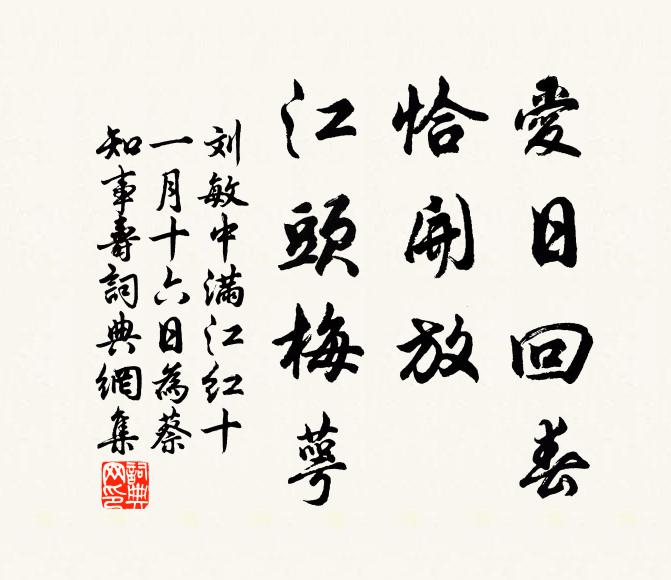 愛日回春
恰開放
江頭梅萼
刘敏中满江红十
一月十六日為蔡
知事壽詞典網集
詞典
网印